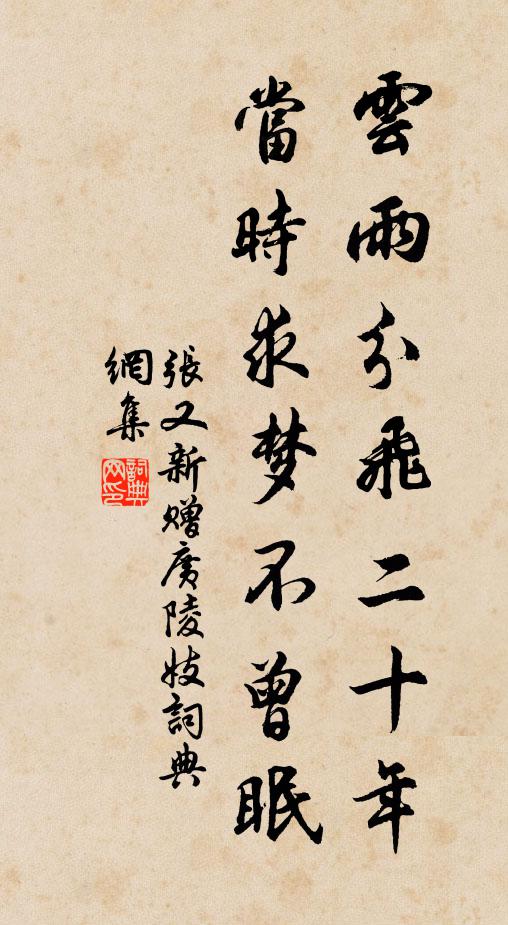 雲雨分飛二十年
當時求梦不曾眠
張又新贈廣陵妓詞典
網集
詞典网印